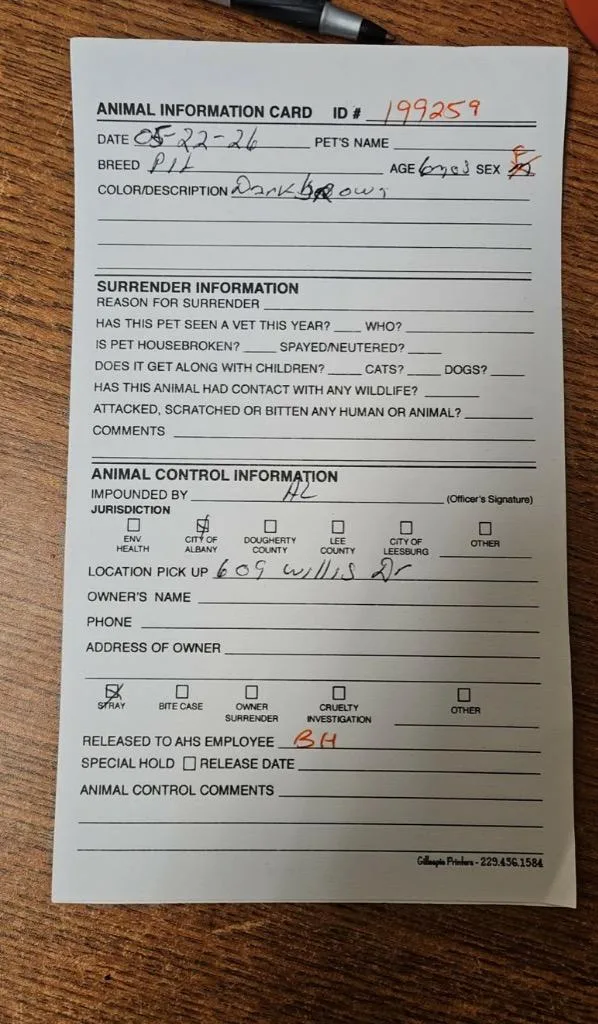 ANIMAL INFORMATION CARD ID # 199259
DATE 05-22-26 PET'S NAME
BREED Pit AGE SEX F
COLOR/DESCRIPTION Dark brown
SURRENDER INFORMATION
REASON FOR SURRENDER
HAS THIS PET SEEN A VET THIS YEAR? WHO?
IS PET HOUSEBROKEN? SPAYED/NEUTERED?
DOES IT GET ALONG WITH CHILDREN? CATS? DOGS?
HAS THIS ANIMAL HAD CONTACT WITH ANY WILDLIFE?
ATTACKED, SCRATCHED OR BITTEN ANY HUMAN OR ANIMAL?
COMMENTS
ANIMAL CONTROL INFORMATION
IMPOUNDED BY AL (Officer's Signature)
JURISDICTION
ENV. HEALTH
CITY OF ALBANY
DOUGHERTY COUNTY
LEE COUNTY
CITY OF LEESBURG
OTHER
LOCATION PICK UP 609 Willis Dr
OWNER'S NAME
PHONE
ADDRESS OF OWNER
STRAY
BITE CASE
OWNER SURRENDER
CRUELTY INVESTIGATION
OTHER
RELEASED TO AHS EMPLOYEE BH
SPECIAL HOLD RELEASE DATE
ANIMAL CONTROL COMMENTS
Gillespie Printers - 229.436.1584